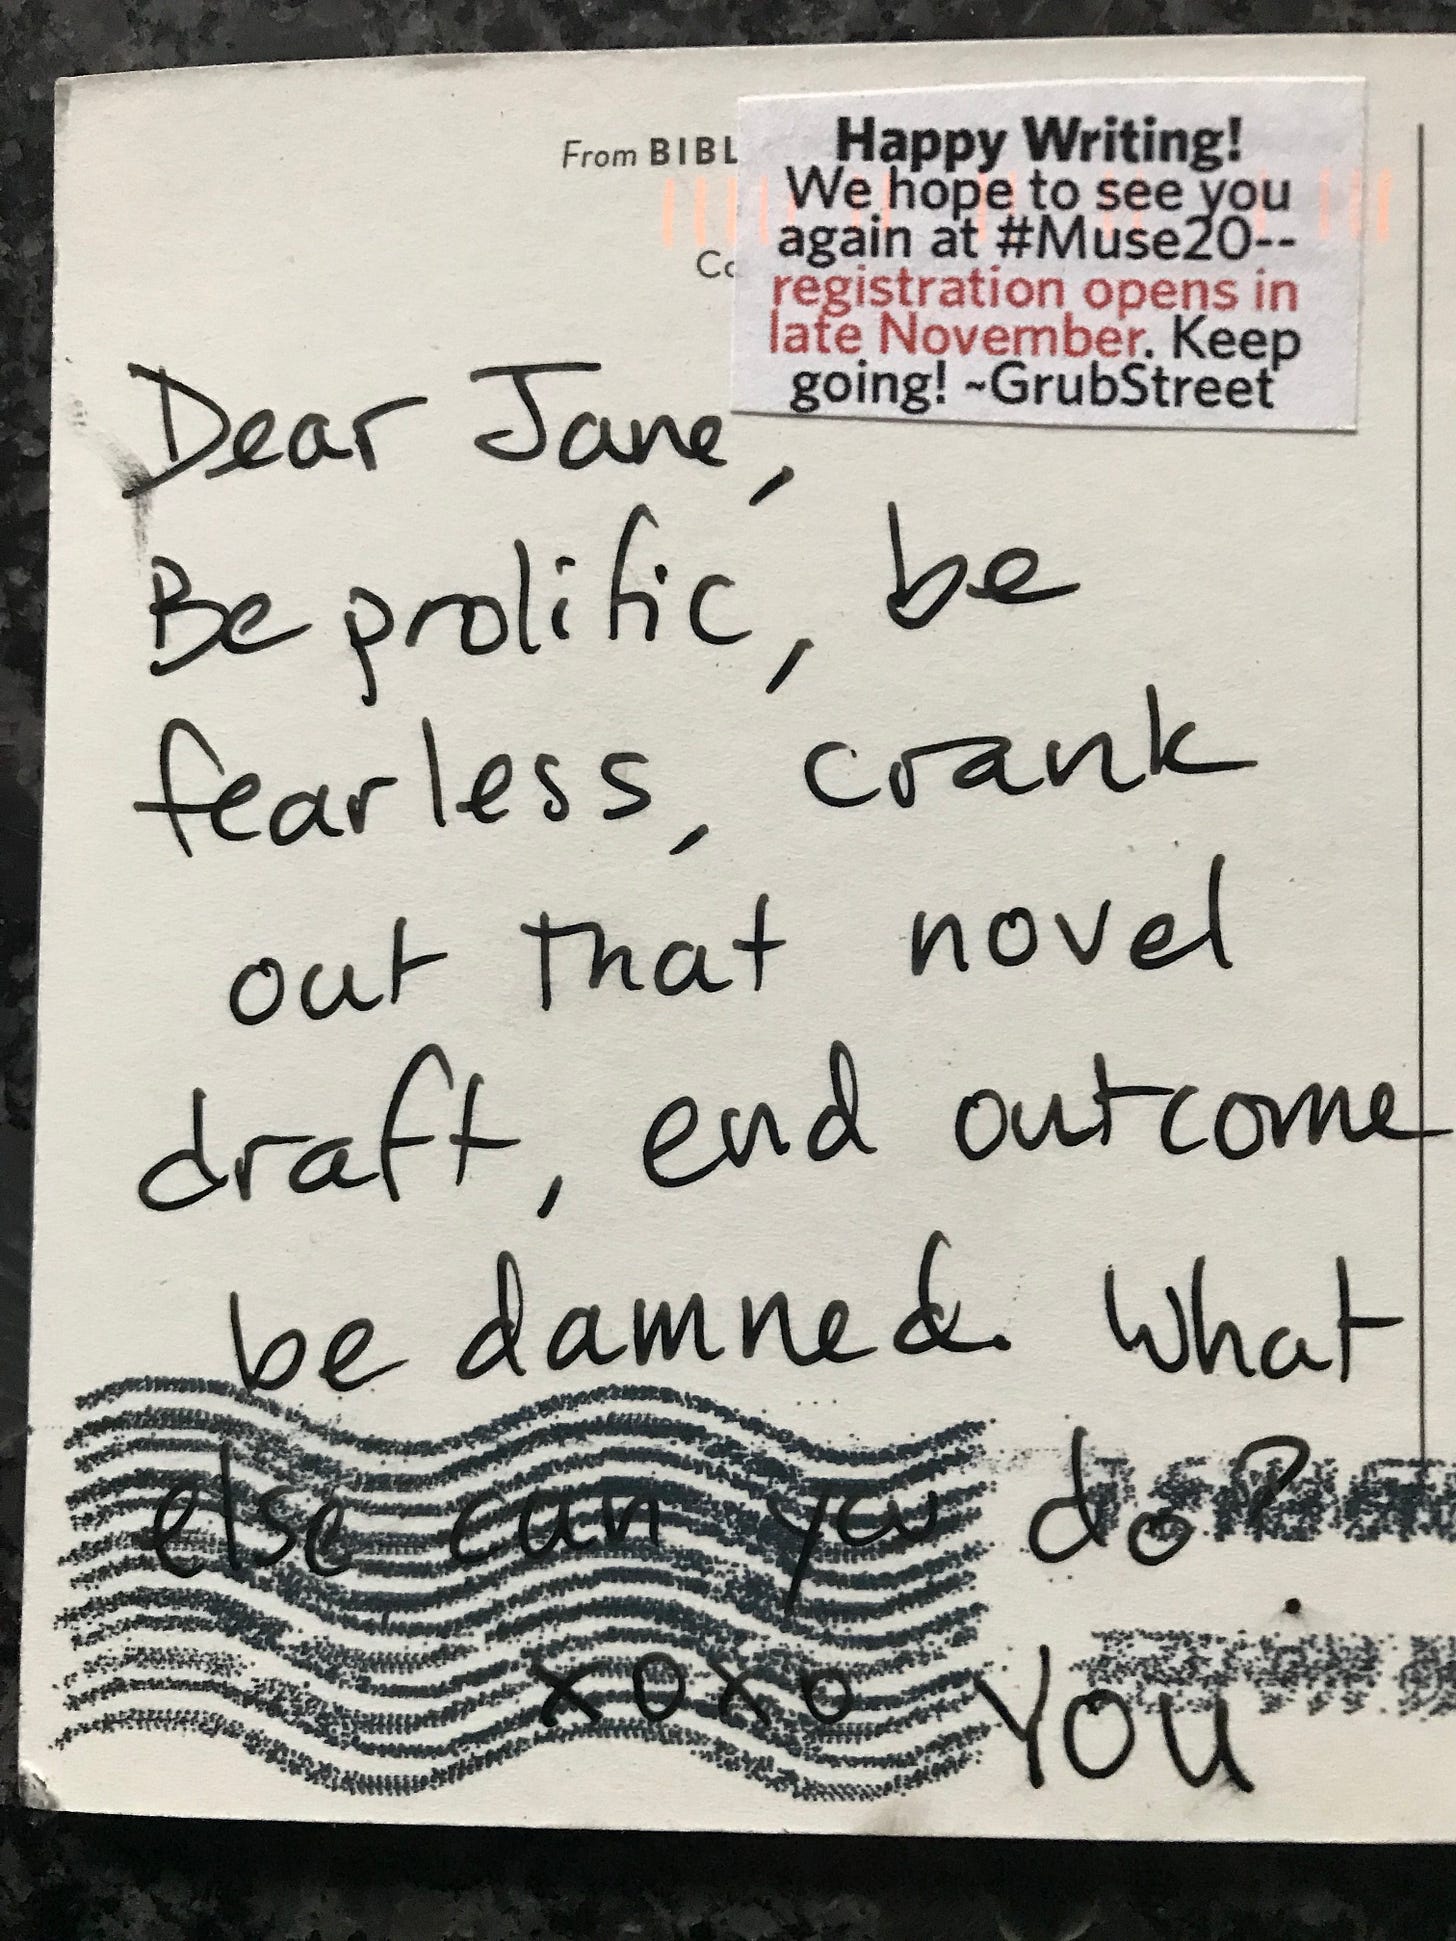 From BIBL
Happy Writing!
We hope to see you
again at #Muse20--
registration opens in
late November. Keep
going! ~GrubStreet
Dear Jane,
Be prolific, be
fearless, crank
out that novel
draft, end outcome
be damned. What
else can you do?
xoxo You